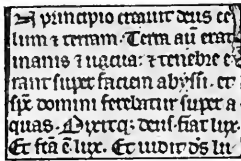 In principio creavit deus ce
lum ⁊ terram. Terra aũ erat
inanis ⁊ vacua: ⁊ tenebre e
rant super faciem abyssi. et
sp̃s domini ferebatur super a
quas. Dixitq; deus. fiat lux.
Et fcã ẽ lux. Et vidit dñs lu